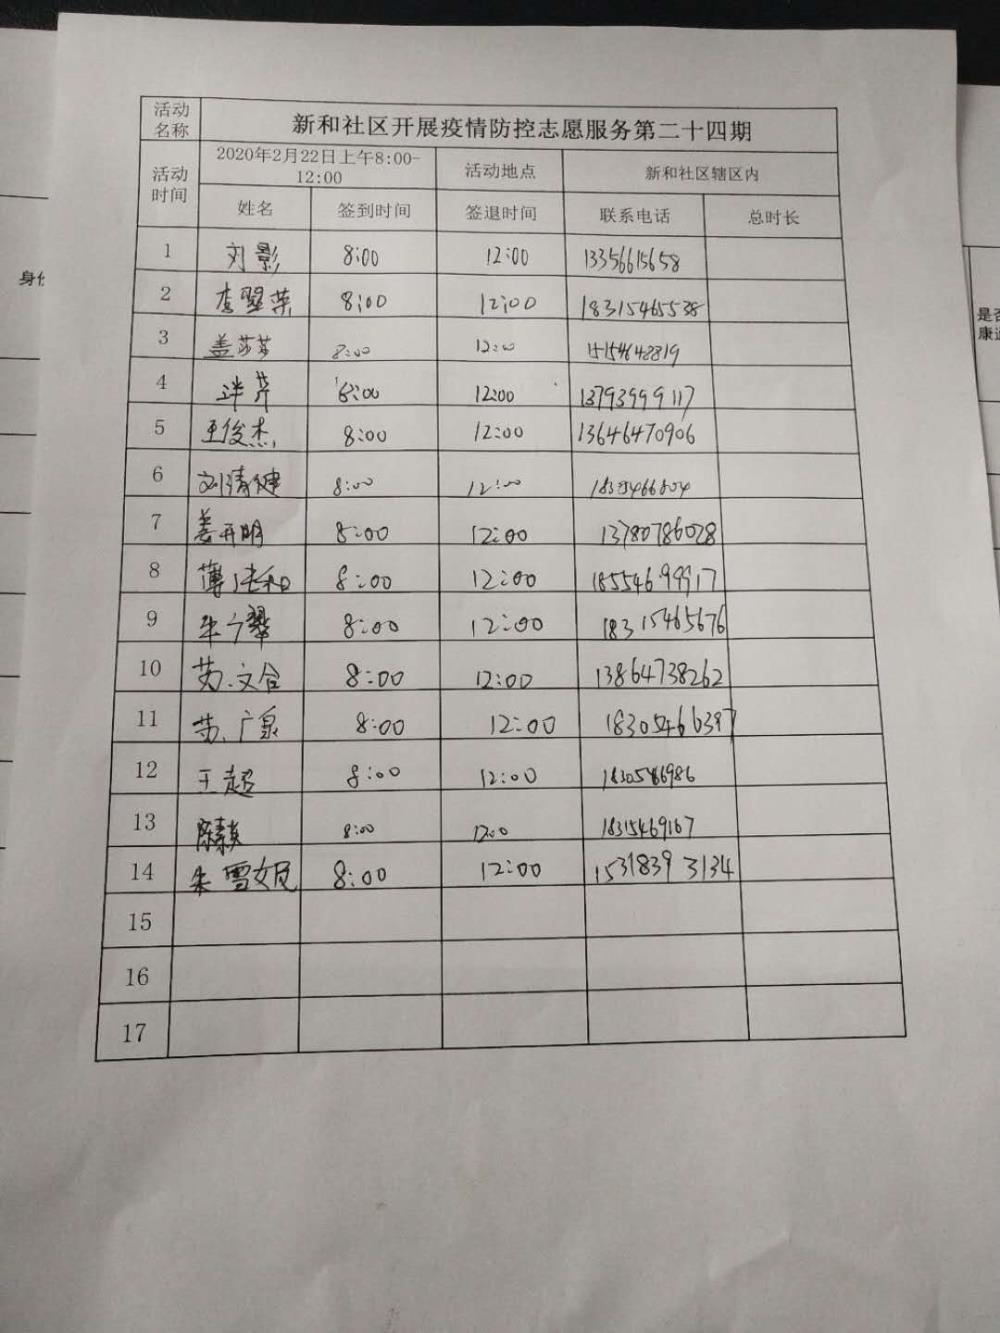 活动名称 新和社区开展疫情防控志愿服务第二十四期
活动时间 2020年2月22日上午8:00-12:00 活动地点 新和社区辖区内
姓名 签到时间 签退时间 联系电话 总时长
1 刘影 8:00 12:00 13356615658
2 李翠荣 8:00 12:00 18315465538
3 盖莎莎 8:00 12:00 15154642819
4 8:00 12:00 13793999117
5 王俊杰 8:00 12:00 13646470906
6 刘清健 8:00 12:00
7 姜开明 8:00 12:00 13780786028
8 薄 和 8:00 12:00 18554699917
9 朱 翠 8:00 12:00 18315465676
10 苏文合 8:00 12:00 13864738262
11 苏广泉 8:00 12:00 18305466397
12 王超 8:00 12:00
13 陈素英 8:00 12:00
14 朱雪妮 8:00 12:00 15318393134
15
16
17
身份
是否